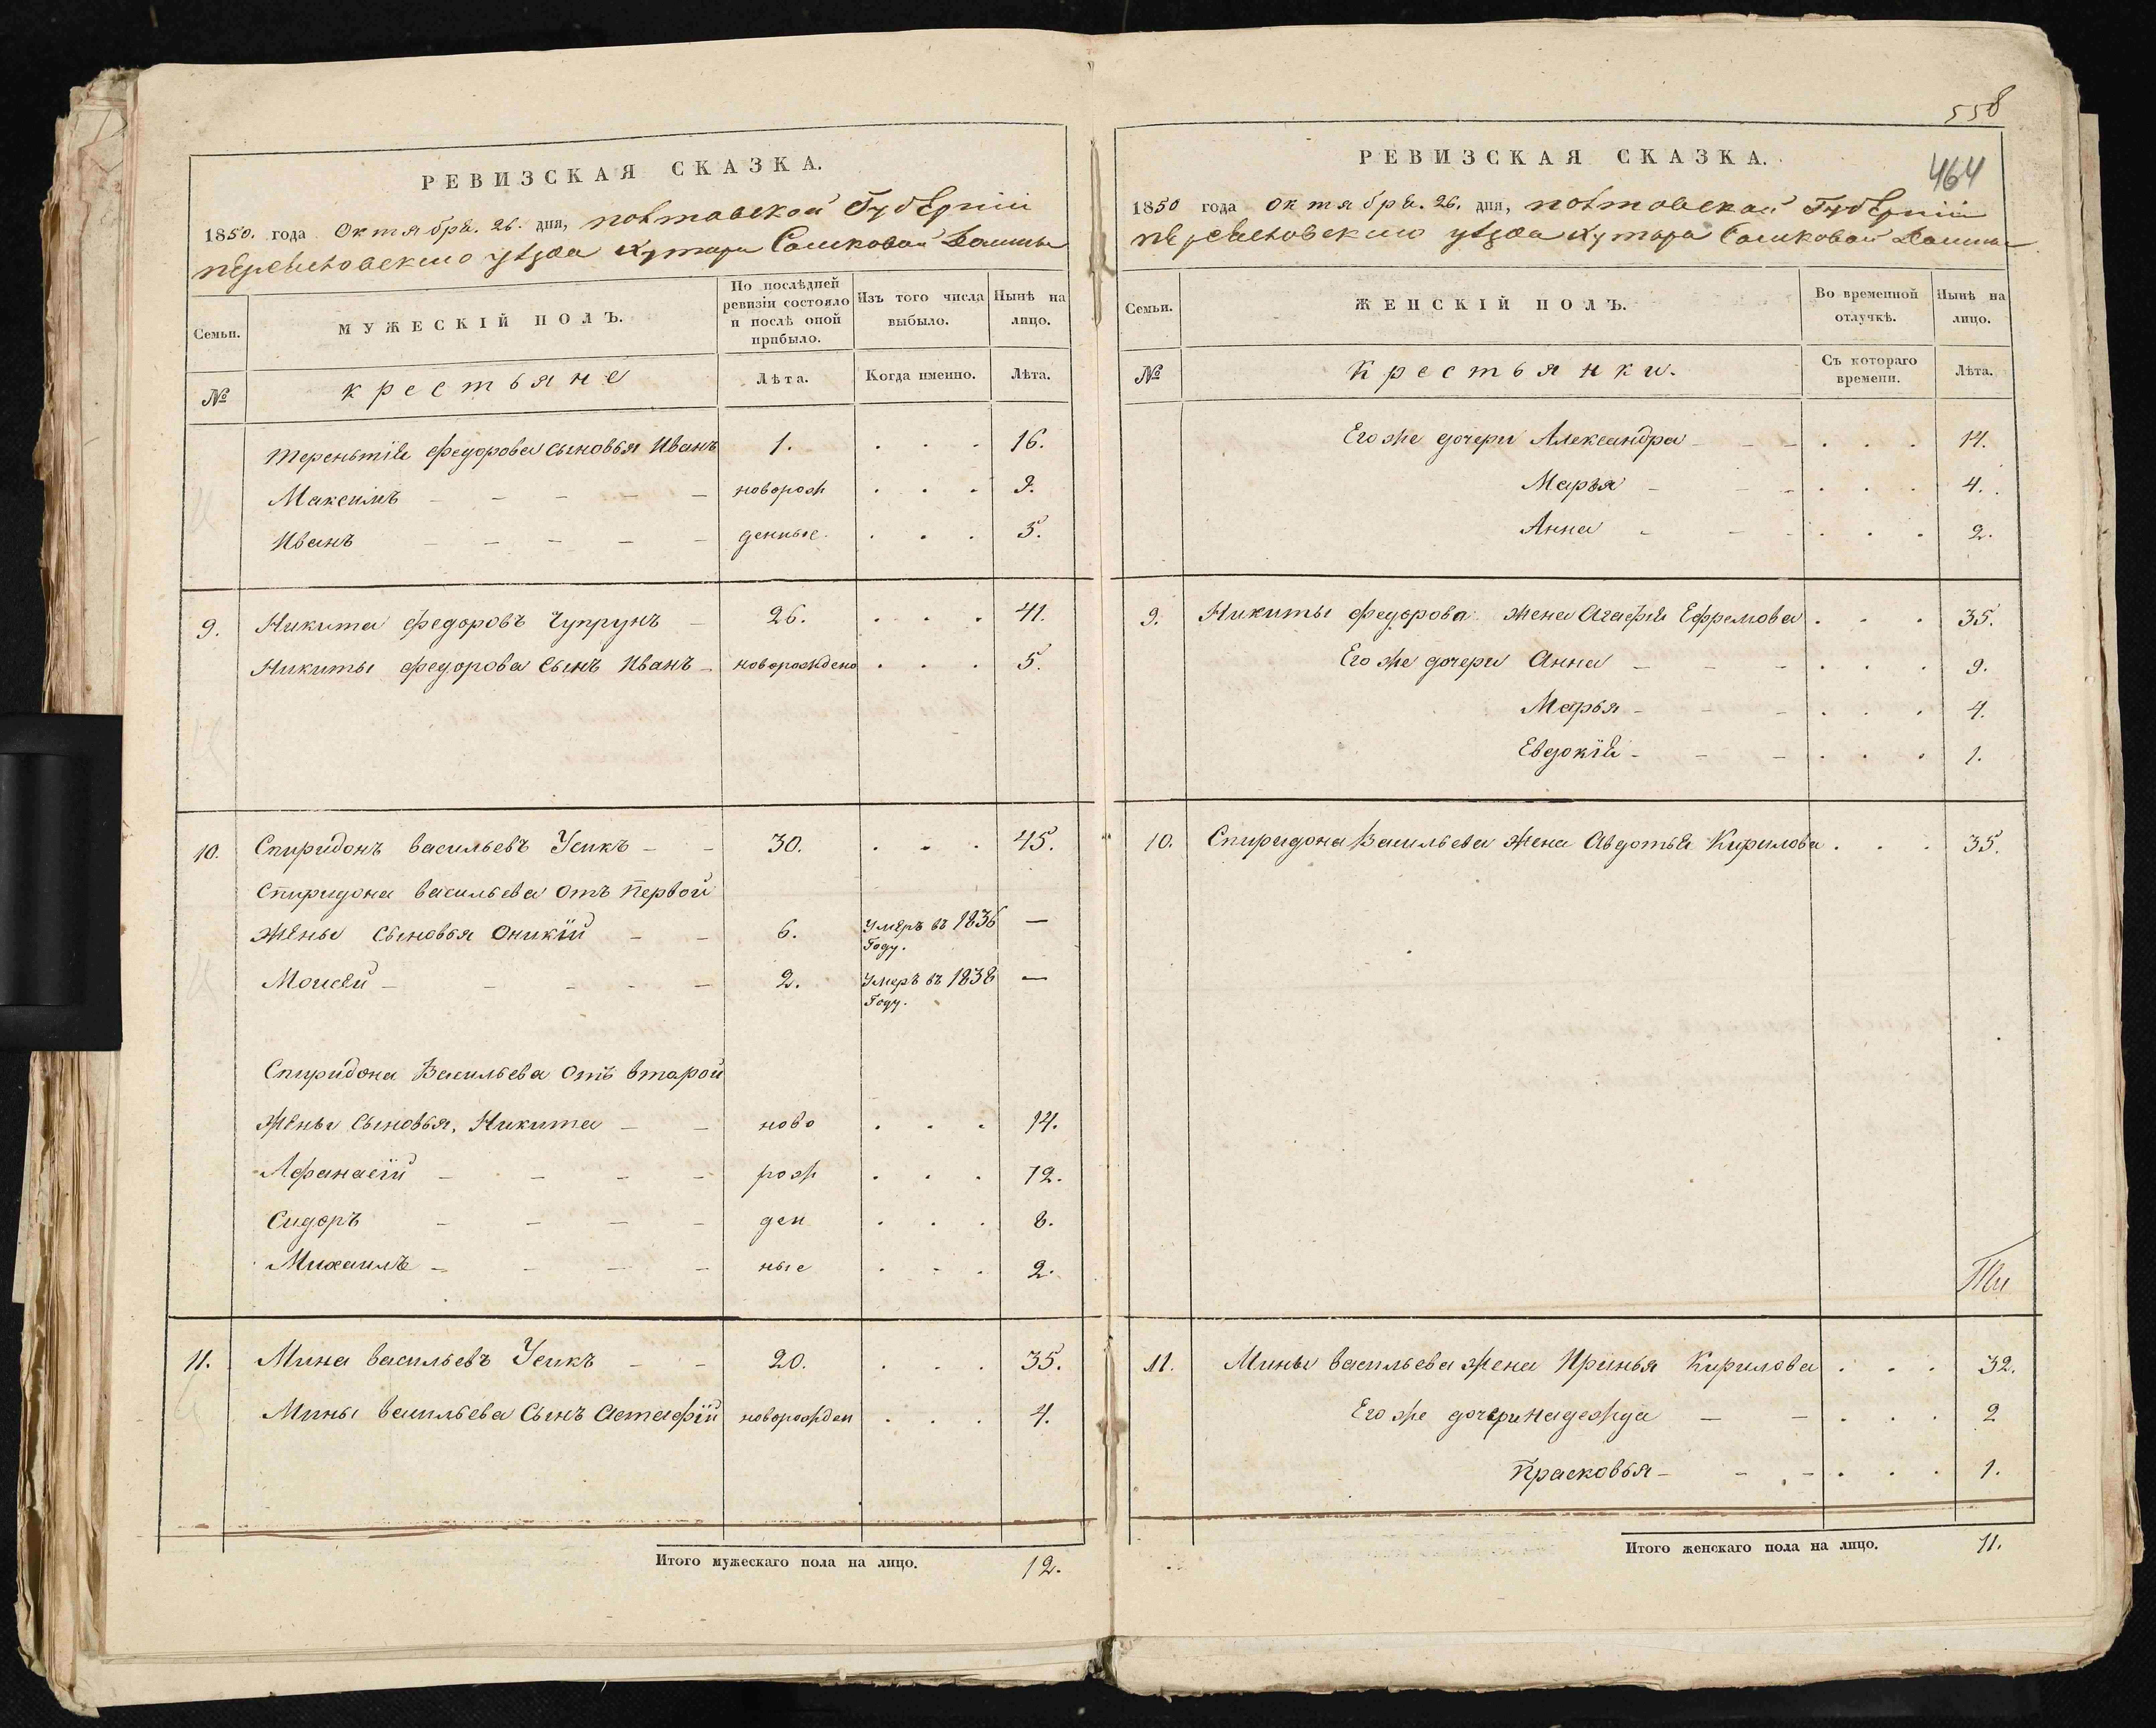 РЕВИЗСКАЯ СКАЗКА.
1850. года Октября. 26. дня, полтавской Губерніи
переяславскаго уѣзда хутора Сошковой Долины
Семьи.
МУЖЕСКІЙ ПОЛЪ.
По послѣдней ревизіи состояло и послѣ оной прибыло.
Изъ того числа выбыло.
Нынѣ на лицо.
№
крестьяне
Лѣта.
Когда именно.
Лѣта.
Терентія Федорова сыновья Иванъ 1. . . . 16.
Максимъ – – – – – новорож . . . 9.
Иванъ – – – – – денные. . . . 5.
9. Никита Федоровъ Чупрунъ – 26. . . . 41.
Никиты Федорова Сынъ Иванъ – новорожденo . . . 5.
10. Спиридонъ васильевъ Усикъ – – 30. . . . 45.
Спиридона васильева Отъ Первой
жены Сыновья Оникій – – 6. Умеръ въ 1836 Году. —
Моисей – – – – – 2. Умеръ въ 1838 Году. —
Спиридона Васильева Отъ второй
жены Сыновья, Никита – – ново . . . 14.
Афанасій – – – – рож . . . 12.
Сидоръ – – – – ден . . . 8.
Михаилъ – – – – ные . . . 2.
11. Мина васильевъ Усикъ – – 20. . . . 35.
Мины васильева Сынъ Астафій новорожден . . . 4.
Итого мужескаго пола на лицо. 12.
558
464
РЕВИЗСКАЯ СКАЗКА.
1850 года Октября. 26. дня, полтавской Губерніи
переяславскаго уѣзда хутора Сошковой Долины
Семьи.
ЖЕНСКІЙ ПОЛЪ.
Во временной отлучкѣ.
Нынѣ на лицо.
№
Крестьянки.
Съ котораго времени.
Лѣта.
Его же дочери Александра – – . . . 14.
Марья – – – . . . 4.
Анна – – – . . . 2.
9. Никиты Федорова жена Агафія Ефремова . . . 35.
Его же дочери Анна – – – . . . 9.
Марья – – – . . . 4.
Евдокія – – – . . . 1.
10. Спиридона Васильева жена Авдотья Кирилова . . . 35.
11. Мины васильева жена Иринья Кирилова . . . 32.
Его же дочери Надежда – – . . . 2
Прасковья – – – . . . 1.
Итого женскаго пола на лицо. 11.